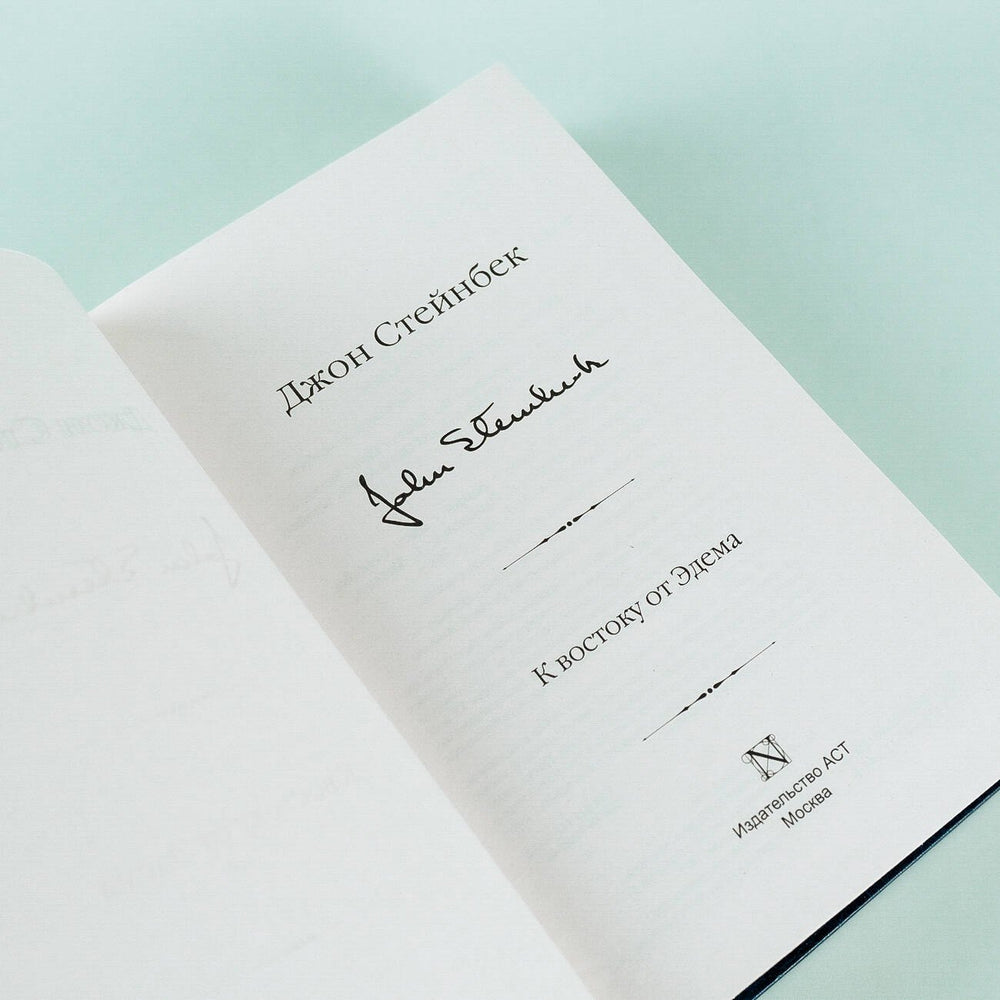 Джон Стейнбек
John Steinbeck
К востоку от Эдема
N
Издательство АСТ
Москва